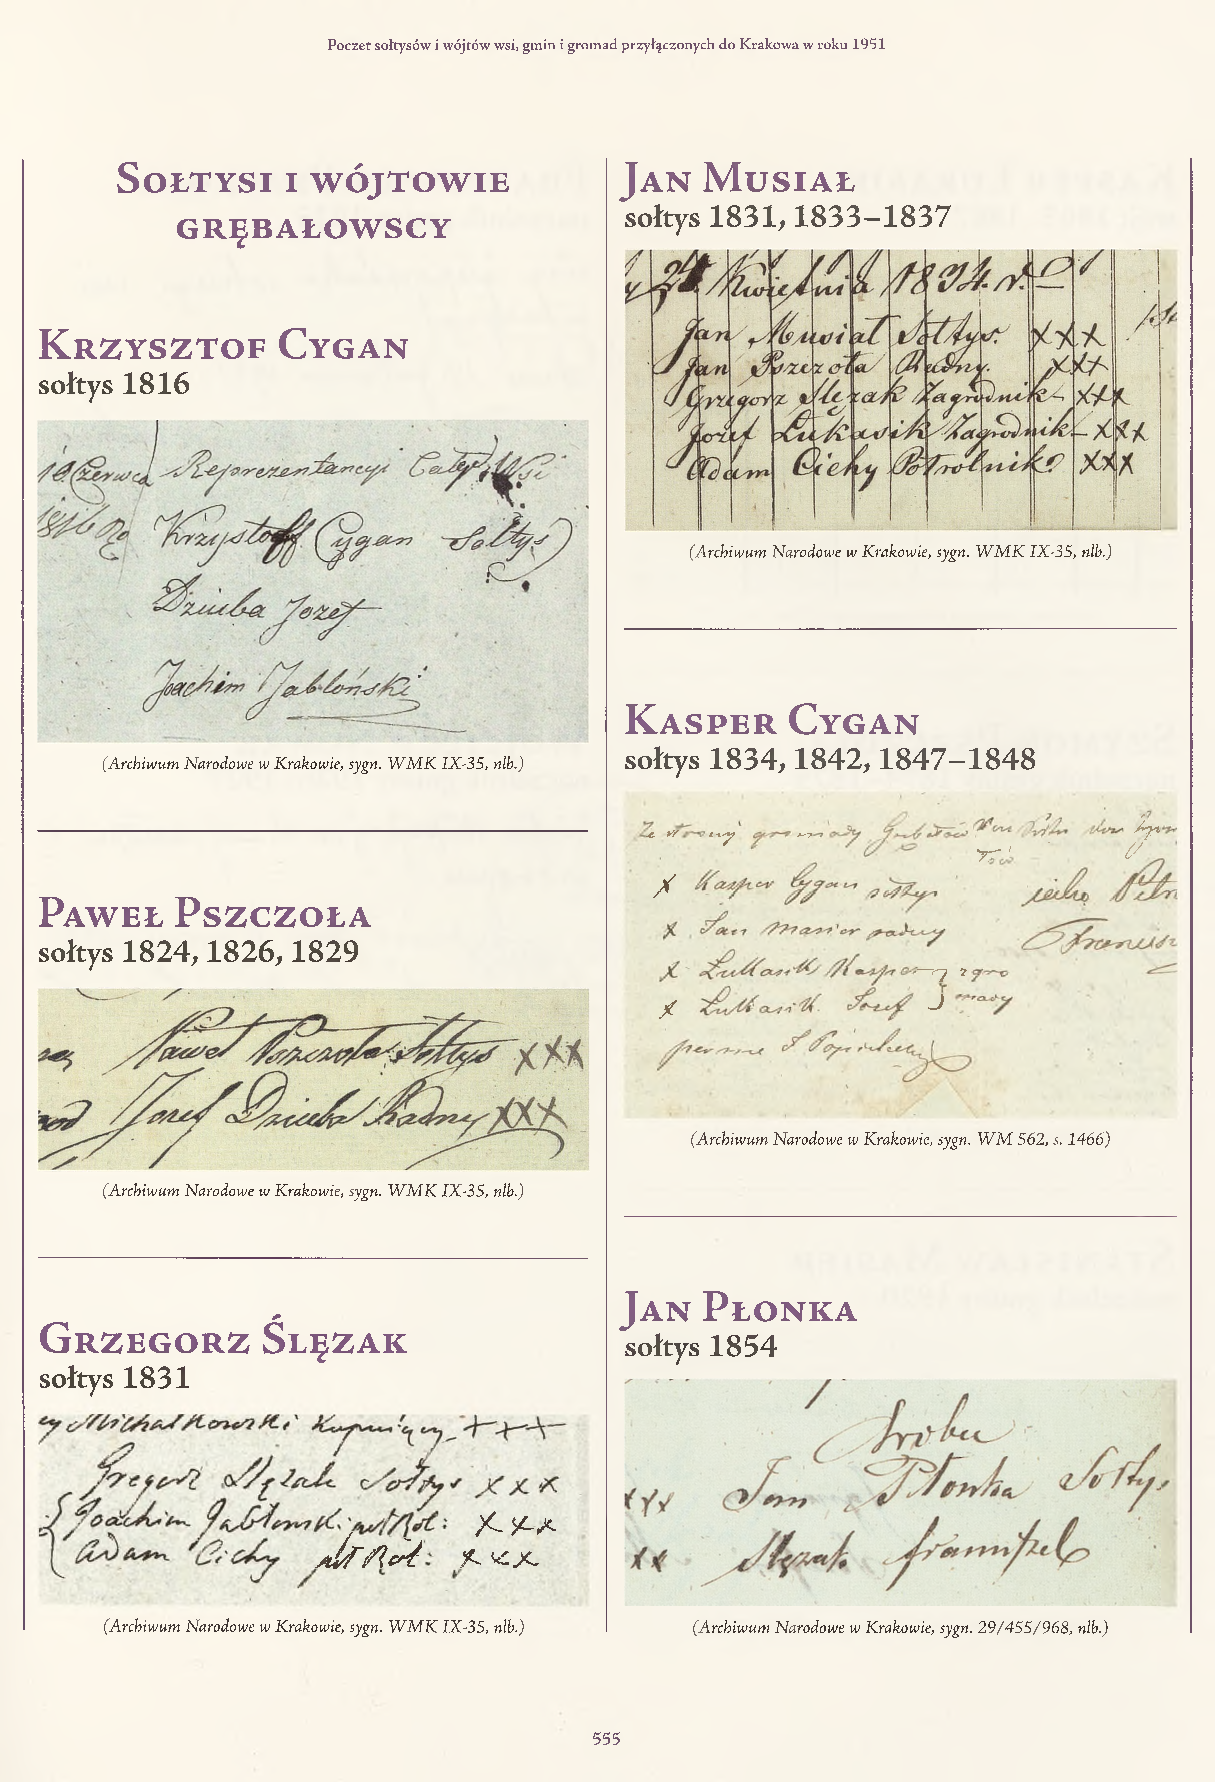 Poczet sołtysów i wójtów wsi, gmin i gromad przyłączonych do Krakowa w roku 1951
Sołtysi i wójtowie
grębałowscy
Krzysztof Cygan
sołtys 1816
10 Czerwca Reprezentancyi Całey Wsi
1816 Ro Krzystoff Cygan Sołtys
Dziuba Jozef
Joachim Jabłoński
(Archiwum Narodowe w Krakowie, sygn. WMK IX-35, nlb.)
Paweł Pszczoła
sołtys 1824, 1826, 1829
Paweł Pszczoła Sołtys XXX
Jozef Dziuba Radny XXX
(Archiwum Narodowe w Krakowie, sygn. WMK IX-35, nlb.)
Grzegorz Ślęzak
sołtys 1831
Michałkowski +++
Gregorz Slęzak Sołtys x x x
Joachim Jabłonski półRol: x x x
Adam Cichy półRol: x x x
(Archiwum Narodowe w Krakowie, sygn. WMK IX-35, nlb.)
Jan Musiał
sołtys 1831, 1833–1837
Kwietnia 1834. r.
Jan Musiał Sołtys. XXX
Jan Pszczoła Radny. XXX
Grzegorz Slęzak Zagrodnik – XXX
Jozef Łukasik Zagrodnik – XXX
Adam Cichy Połrolnik XXX
(Archiwum Narodowe w Krakowie, sygn. WMK IX-35, nlb.)
Kasper Cygan
sołtys 1834, 1842, 1847–1848
Ze strony gromady
x Kasper Cygan sołtys
x Jan Masior radny
x Łukasik Kasper } z gro
x Łukasik Jozef } mady
(Archiwum Narodowe w Krakowie, sygn. WM 562, s. 1466)
Jan Płonka
sołtys 1854
xxx Jan Płonka Sołtys
xx Slęzak
(Archiwum Narodowe w Krakowie, sygn. 29/455/968, nlb.)
555